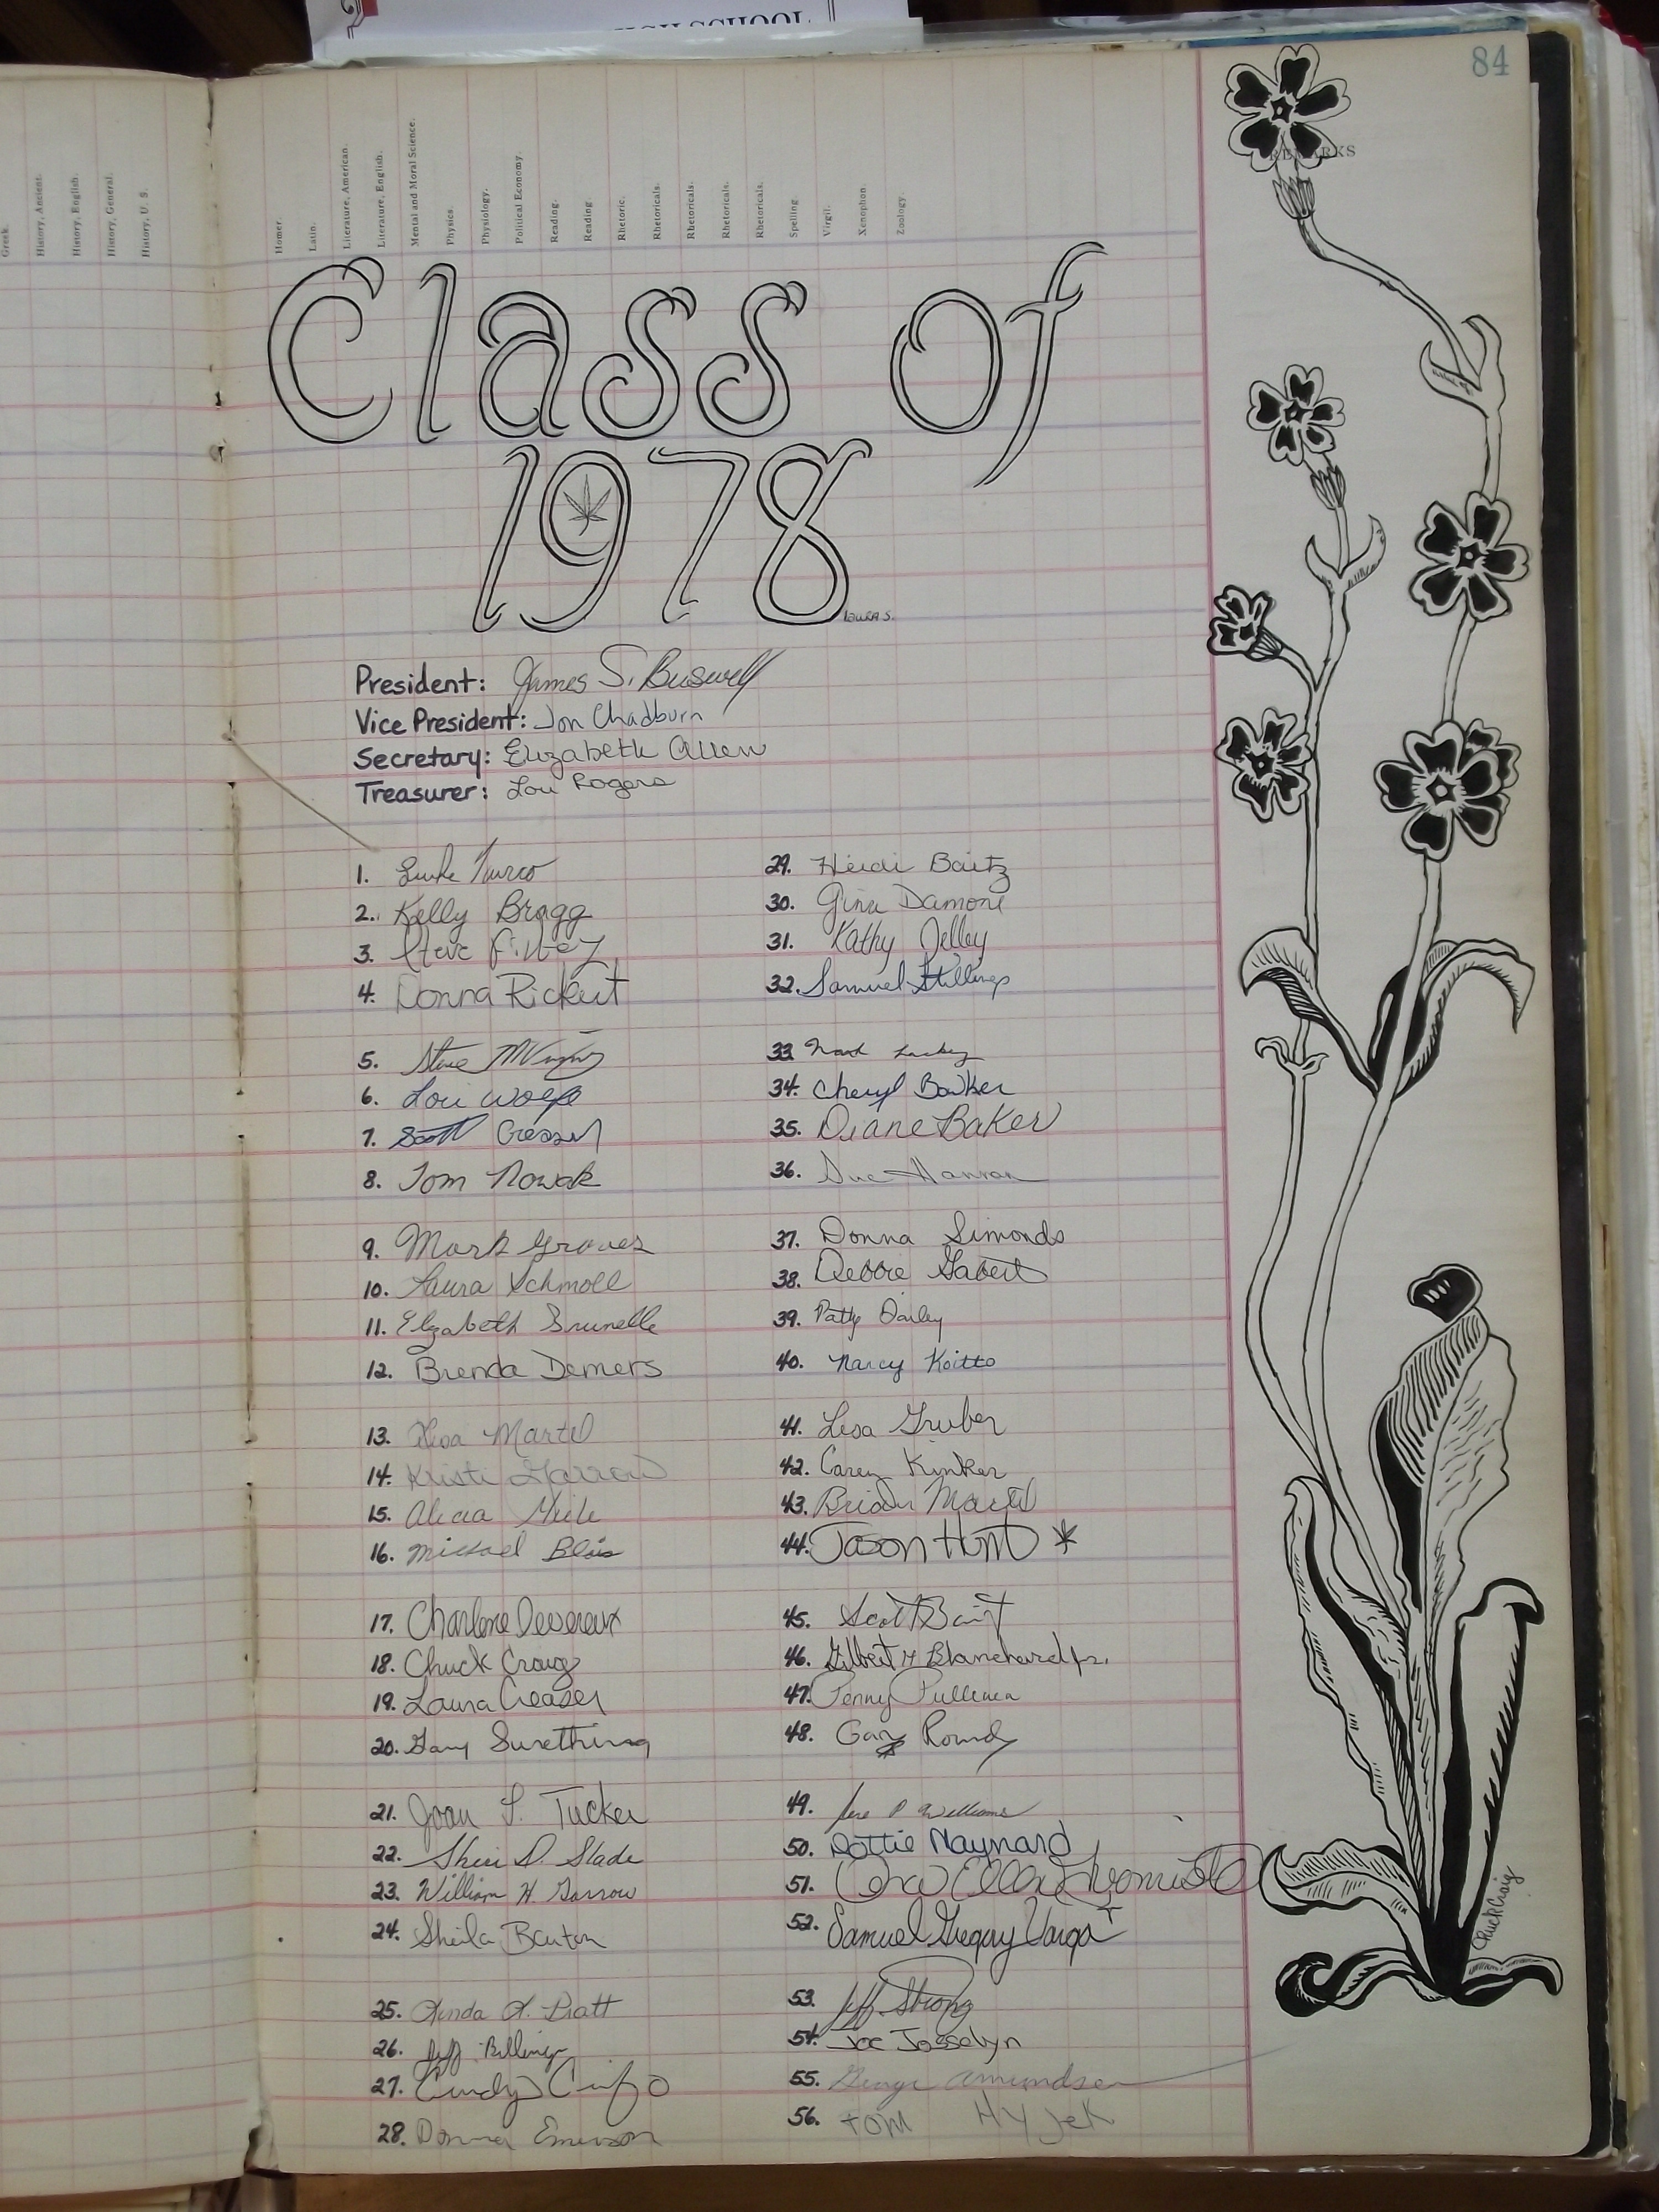 HIGH SCHOOL
84
REMARKS
Greek.
History, Ancient.
History, English.
History, General.
History, U. S.
Homer.
Latin.
Literature, American.
Literature, English.
Mental and Moral Science.
Physics.
Physiology.
Political Economy.
Reading.
Reading.
Rhetoric.
Rhetoricals.
Rhetoricals.
Rhetoricals.
Rhetoricals.
Spelling.
Virgil.
Xenophon.
Zoology.
Class of
1978
Laura S.
President: James S. Buswell
Vice President: Jon Chadburn
Secretary: Elizabeth Allen
Treasurer: Lou Rogers
1. Luke Turco
2. Kelly Bragg
3. Steve
4. Donna Rickert
5. Steve
6. Lori Wolfe
7. Scott
8. Tom Nowak
9. Mark Graves
10. Laura Schmoll
11. Elizabeth Brunelle
12. Brenda Demers
13. Lisa Martel
14. Kristi Garrow
15. Alicia
16. Michael Blais
17. Charlene Devereux
18. Chuck Craig
19. Laura Creaser
20. Gary Surething
21. Joan L. Tucker
22. Sheri D. Slade
23. William H. Garrow
24. Sheila Barton
25. Linda L. Pratt
26. Jeff Billings
27. Cindy
28. Donna Emerson
29. Heidi Baitz
30. Gina Damone
31. Kathy Jelley
32. Samuel Stillings
33.
34. Cheryl Bowker
35. Diane Baker
36. Sue Hannan
37. Donna Simonds
38. Debbie Gabert
39. Patty Dailey
40. Nancy Koitto
41. Lisa Gruber
42. Carey Kinker
43. Brian Martel
44. Jason Hunt *
45. Scott
46. Gilbert H Blanchard Jr.
47. Penny Pullinen
48. Gary Roundy
49. P Williams
50. Dottie Maynard
51. Ellen
52. Samuel Gregory Varga
53. Jeff Strong
54. Joe Josselyn
55. George Amundsen
56. Tom Hyjek
Chuck Craig